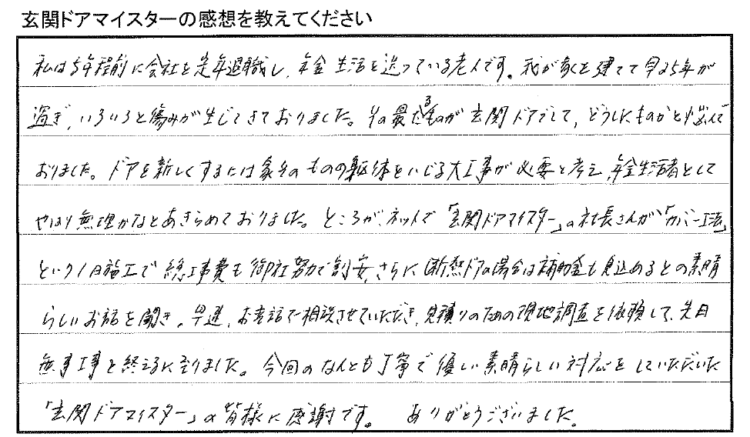 玄関ドアマイスターの感想を教えてください
私は5年程前に会社を定年退職し、年金生活を送っている老人です。我が家を建てて早25年が
過ぎ、いろいろと傷みが生じてきておりました。その最たるものが玄関ドアでして、どうしたものかと悩んで
おりました。ドアを新しくするには家そのものの躯体をいじる大工事が必要と考え、年金生活者として
やはり無理かなとあきらめておりました。ところがネットで「玄関ドアマイスター」の社長さんが「カバー工法」
という1日施工で総工事費も御社努力で割安、さらに断熱ドアの場合は補助金も見込めるとの素晴
らしいお話を聞き、早速、お電話で相談させていただき、見積りのための現地調査を依頼して、先日
無事工事を終るに至りました。今回のなんとも丁寧で優しい素晴らしい対応をしていただいた
「玄関ドアマイスター」の皆様に感謝です。 ありがとうございました。